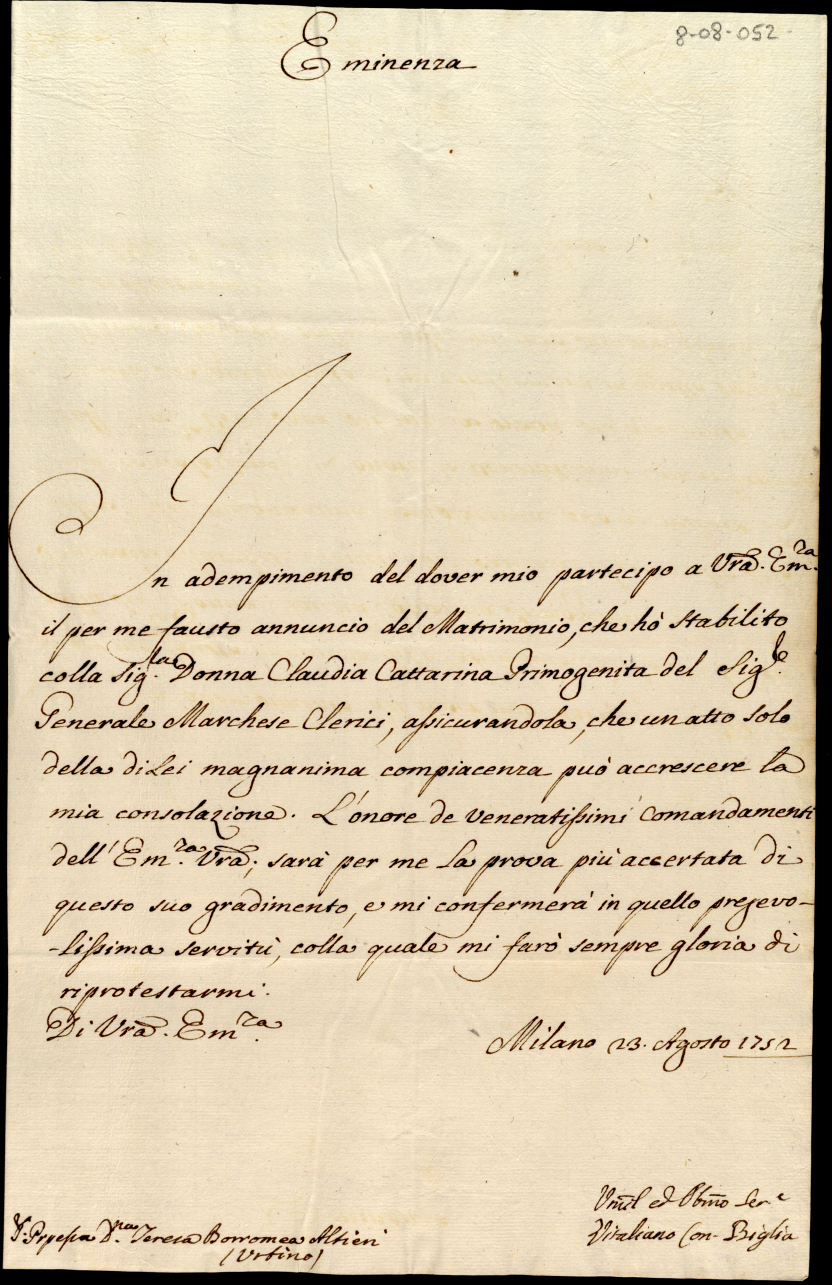 8-08-052
Eminenza
In adempimento del dover mio partecipo a Vra. Em.za
il per me fausto annuncio del Matrimonio, che hò stabilito
colla Sig.la Donna Claudia Cattarina Primogenita del Sig.e
Generale Marchese Clerici, assicurandola, che un atto solo
della di Lei magnanima compiacenza può accrescere la
mia consolazione. L'onore de veneratissimi comandamenti
dell' Em.za Vra; sarà per me la prova più accertata di
questo suo gradimento, e mi confermerà in quello pregevo-
-lissima servitù, colla quale mi farò sempre gloria di
riprotestarmi.
Di Vra. Em.za
Milano 23. Agosto 1752
Umil ed Obmo Ser.e
Vitaliano Con. Biglia
D.na Teresa Borromea Altieri